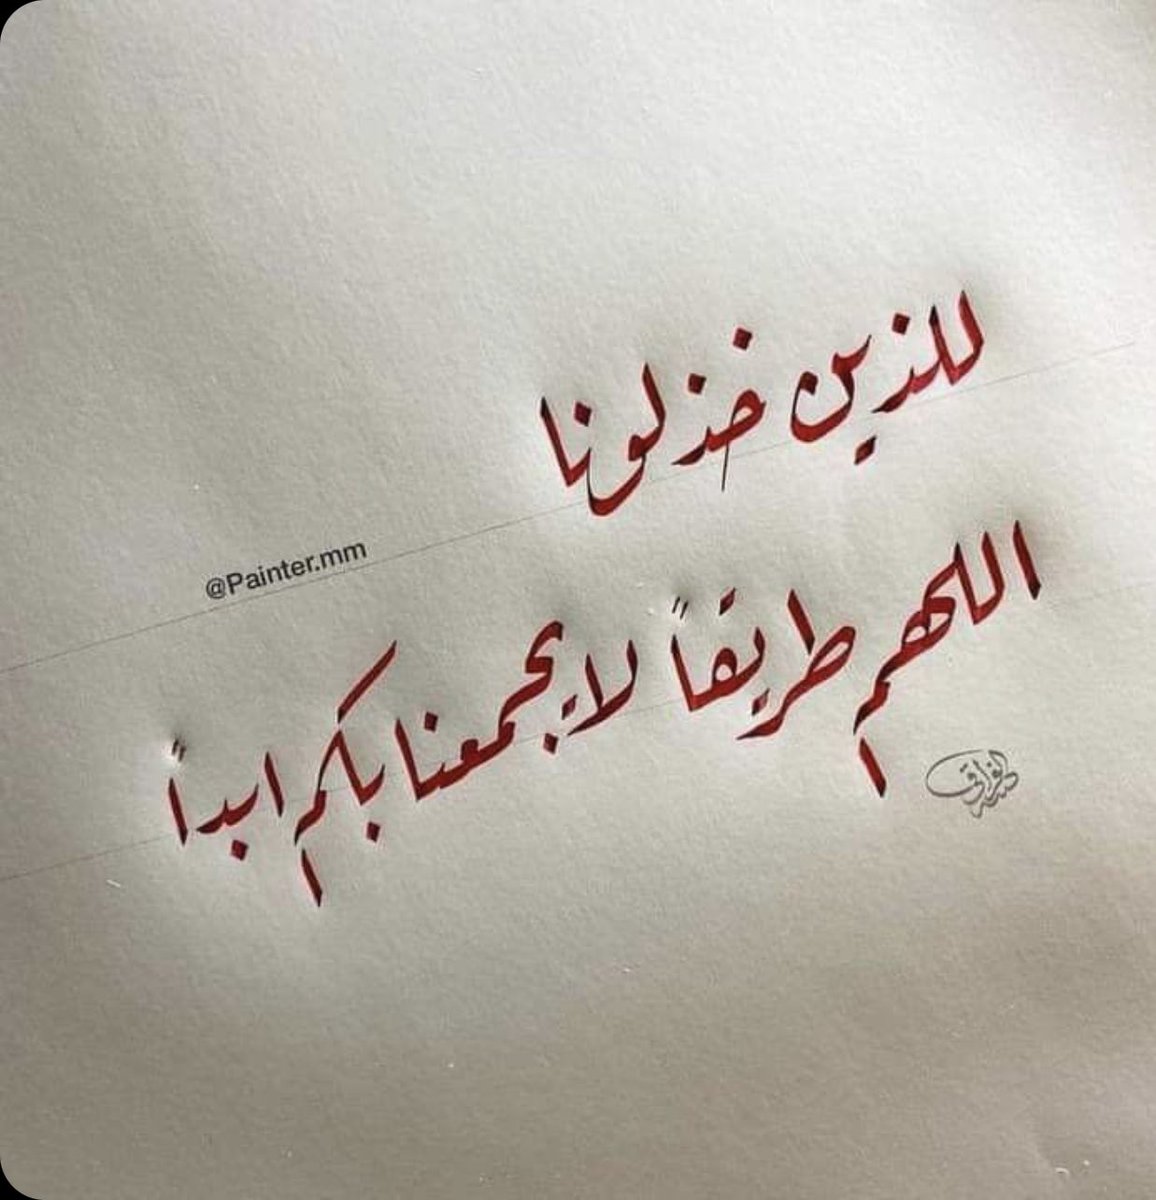 للذين خذلونا
@Painter.mm
اللهم طريقاً لا يجمعنا بكم ابداً